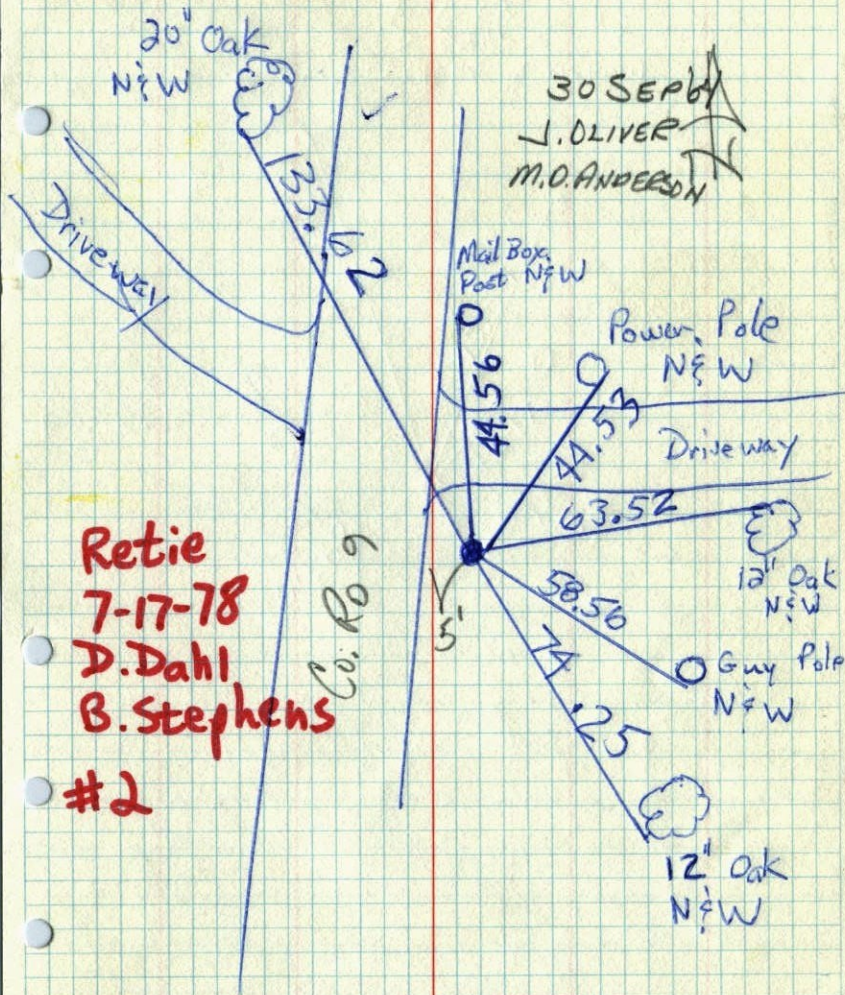 20" Oak
N&W
30 SEP
J. OLIVER
M.O. ANDERSON
133.62
Driveway
Mail Box
Post N&W
Power Pole
N&W
44.56
44.53
Driveway
63.52
12" Oak
N&W
58.56
Guy Pole
N&W
74.25
5'
Co. RD 9
12" Oak
N&W
Retie
7-17-78
D.Dahl
B.Stephens
#2